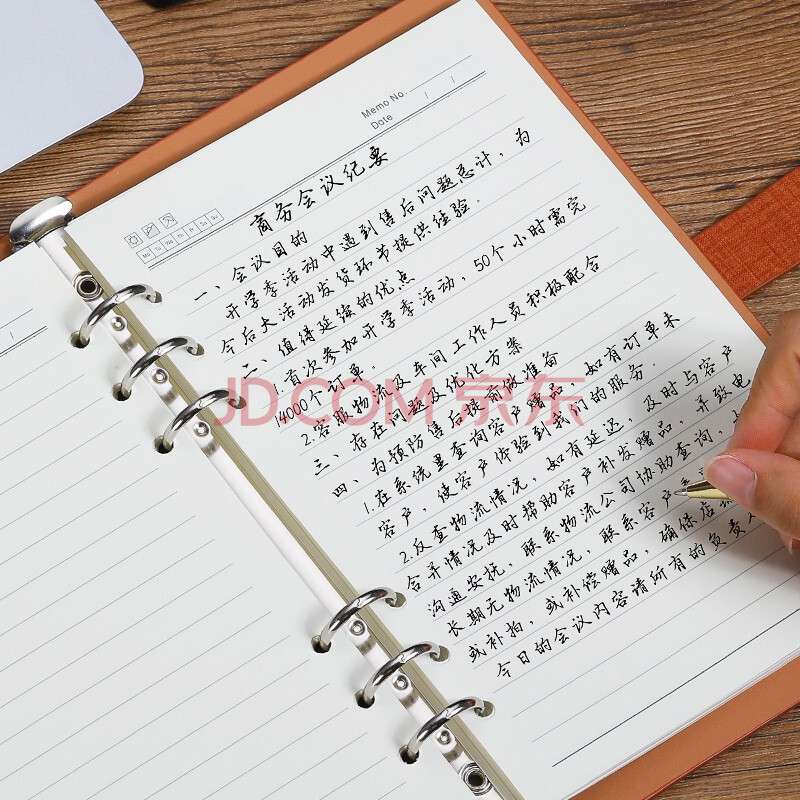 Memo No.
Date / /
Mo Tu We Th Fr Sa Su
商务会议纪要
一、会议目的
开学季活动中遇到售后问题总计，为
今后大活动发货环节提供经验。
二、值得延续的优点
1.首次参加开学季活动，50个小时需完
4000个订单。
2.客服物流及车间工作人员积极配合
三、存在问题及优化方案
四、为预防售后提前做准备
1.在系统里查询客户赠品，如有订单未
客户，使客户体验到我们的服务.
2.反查物流情况，如有延迟，及时与客户
合并情况及时帮助客户补发赠品，并致电
沟通安抚，联系物流公司协助查询，
长期无物流情况，联系客户
或补拍，或补偿赠品，确保店
今日的会议内容请所有的负责人
JD.COM 京东